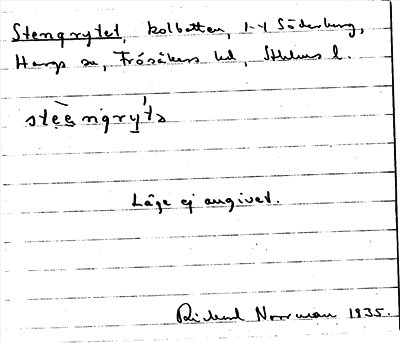 Stengrytet, kolbotten, 1-4 Söderby,
Hargs sn, Frösåkers hd, Sthlms l.
stẹ̀ẹngrý̱tə
Läge ej angivet.
Rickard Norrman 1935.